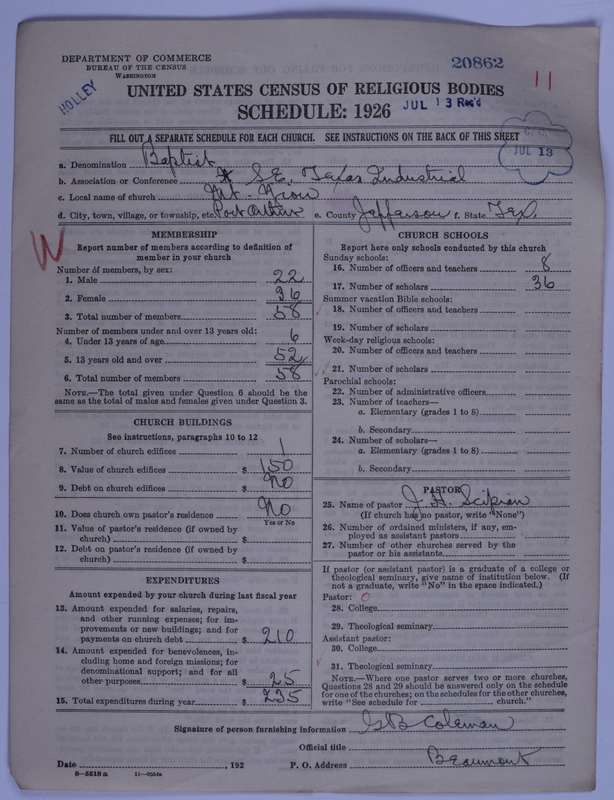 DEPARTMENT OF COMMERCE
BUREAU OF THE CENSUS
WASHINGTON
HOLLEY
20862
11
UNITED STATES CENSUS OF RELIGIOUS BODIES
SCHEDULE: 1926
JUL 13 Rec'd
FILL OUT A SEPARATE SCHEDULE FOR EACH CHURCH. SEE INSTRUCTIONS ON THE BACK OF THIS SHEET
JUL 13
a. Denomination Baptist
b. Association or Conference S.E. Texas Industrial
c. Local name of church Mt. Zion
d. City, town, village, or township, etc. Port Arthur e. County Jefferson f. State Tex.
W
MEMBERSHIP
Report number of members according to definition of
member in your church
Number of members, by sex:
1. Male 22
2. Female 36
3. Total number of members 58
Number of members under and over 13 years old:
4. Under 13 years of age 6
5. 13 years old and over 52
6. Total number of members 58
NOTE.—The total given under Question 6 should be
same as the total of males and females given under Question 3.
CHURCH BUILDINGS
See instructions, paragraphs 10 to 12
7. Number of church edifices 1
8. Value of church edifices $ 150
9. Debt on church edifices $ No
10. Does church own pastor's residence No
Yes or No
11. Value of pastor's residence (if owned by
church) $
12. Debt on pastor's residence (if owned by
church) $
EXPENDITURES
Amount expended by your church during last fiscal year
13. Amount expended for salaries, repairs,
and other running expenses; for im-
provements or new buildings; and for
payments on church debt $ 210
14. Amount expended for benevolences, in-
cluding home and foreign missions; for
denominational support; and for all
other purposes $ 25
15. Total expenditures during year $ 235
CHURCH SCHOOLS
Report here only schools conducted by this church
Sunday schools:
16. Number of officers and teachers 8
17. Number of scholars 36
Summer vacation Bible schools:
18. Number of officers and teachers
19. Number of scholars
Week-day religious schools:
20. Number of officers and teachers
21. Number of scholars
Parochial schools:
22. Number of administrative officers
23. Number of teachers—
a. Elementary (grades 1 to 8)
b. Secondary
24. Number of scholars—
a. Elementary (grades 1 to 8)
b. Secondary
PASTOR
25. Name of pastor J. H. Scipion
(If church has no pastor, write "None")
26. Number of ordained ministers, if any, em-
ployed as assistant pastors
27. Number of other churches served by the
pastor or his assistants
If pastor (or assistant pastor) is a graduate of a college or
theological seminary, give name of institution below. (If
not a graduate, write "No" in the space indicated.)
Pastor: 0
28. College
29. Theological seminary
Assistant pastor:
30. College
31. Theological seminary
NOTE.—Where one pastor serves two or more churches,
Questions 28 and 29 should be answered only on the schedule
for one of the churches; on the schedules for the other churches,
write "See schedule for church."
Signature of person furnishing information G B Coleman
Official title
Date , 192 P. O. Address Beaumont
8—5518a 11—9054a